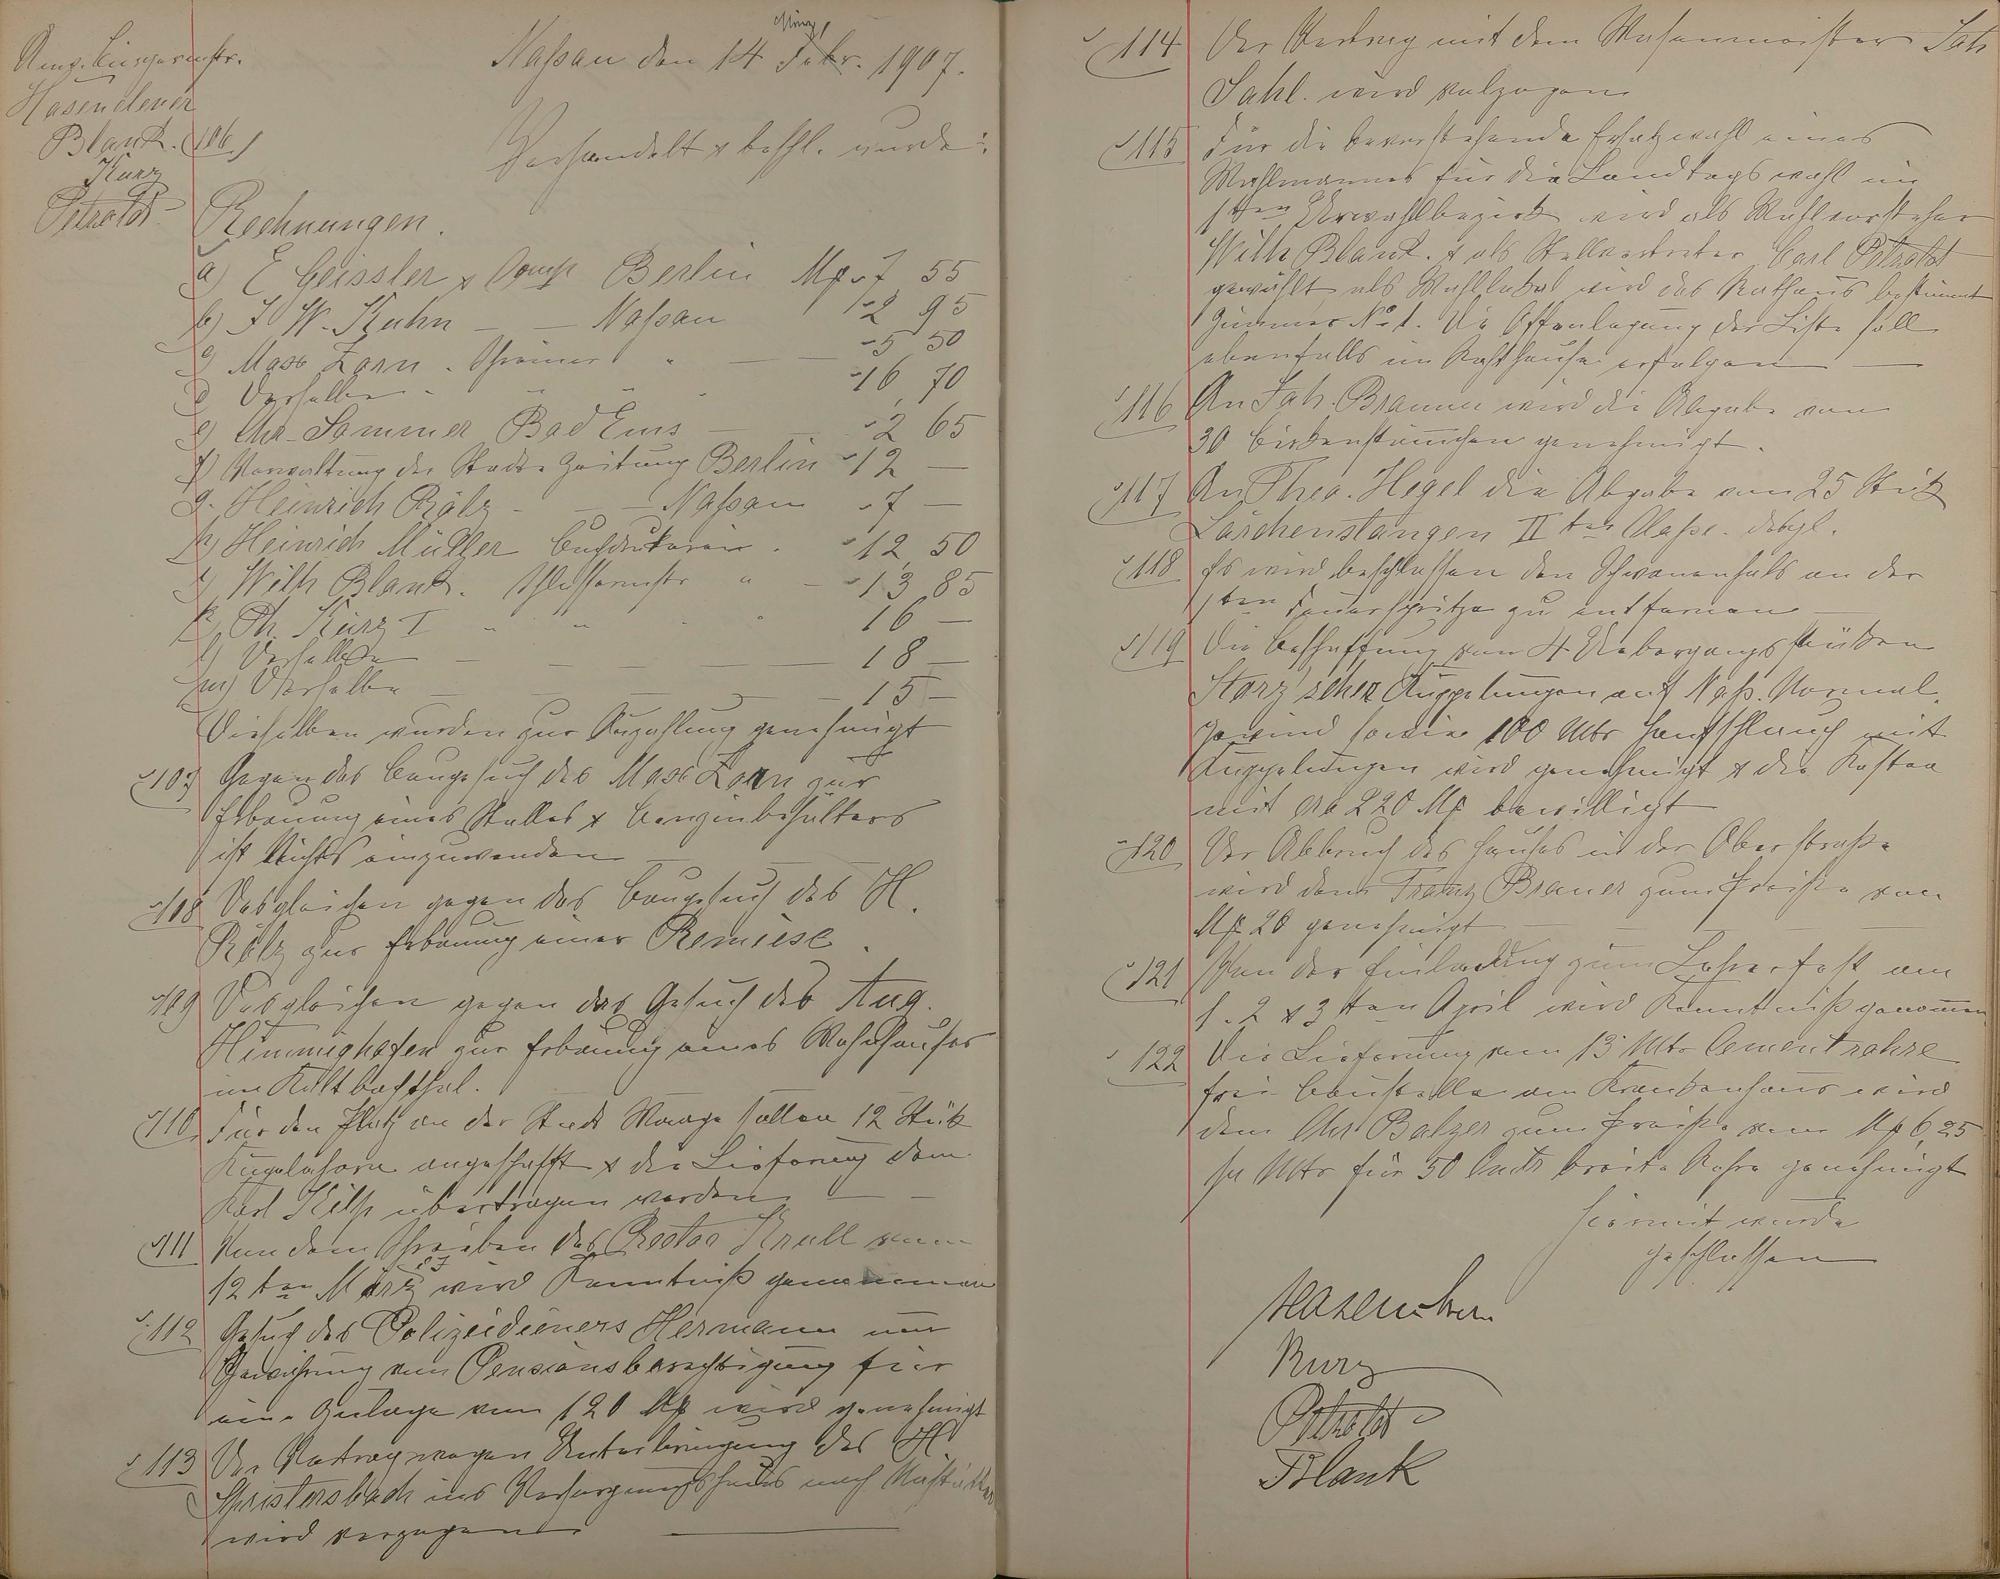 Anw. Bürgermstr.
Hasenclever
Blank.
Kurz
Petzoldt
Nassau den 14 März 1907.
Verhandelt & beschl. wurde:
106
Rechnungen.
a) E Geissler & Comp Berlin Mk 7 55
b) J W. Kuhn — — Nassau 12 95
c) Max Zorn. Schreiner " — 5 50
d Derselbe " " " 16, 70
e) Chr. Sommer Bad Ems — 2 65
f) Verwaltung der Städte Zeitung Berlin 12 —
g. Heinrich Bälz — — Nassau 7 —
h) Heinrich Müller Buchdruckerei. 12, 50
i) Wilh Blank. Schlossermstr " — 13, 85
k) Ph. Kurz I " " " 16 —
l) Derselbe — — — 18 —
m) Derselbe — — — 15 —
Dieselben wurden zur Auszahlung genehmigt
107 Gegen das Baugesuch des Max Zorn zur
Erbauung eines Stalles & Benzinbehälters
ist Nichts einzuwenden
108 Desgleichen gegen das Baugesuch des H.
Bälz zur Erbauung einer Remiese.
109 Desgleichen gegen das Gesuch des Aug.
Himmighofen zur Erbauung eines Wohnhauses
im Kaltbachthal.
110 Für den Platz an der Stadt Waage sollen 12 Stük
Kugelahorn angeschafft & die Lieferung dem
Karl Kilp übertragen werden
111 Von dem Schreiben des Rector Krull vom
12ten März 07 wird Kenntniß genommen
112 Gesuch des Polizeidieners Hermann um
Gewährung von Pensionsberechtigung für
eine Zulage von 120 Mk wird genehmigt
113 Der Vertrag wegen Unterbringung des H.
Christersbach ins Versorgungshaus nach
wird vorzogen
114 Der Vertrag mit dem Wasenmeister Joh
Sahl. wird volzogen
115 Für die bevorstehende Ersatzwahl eines
Wahlmannes für die Landtagswahl im
1ten Urwahlbezirk wird als Wahlvorsteher
Wilh Blank. & als Stellvertreter Carl Petzoldt
gewählt, als Wahllokal wird das Rathaus bestimmt
Zimmer No 1. Die Offenlegung der Liste soll
ebenfalls im Rathause erfolgen
116 An Joh. Braun wird die Abgabe von
30 Birkenstämchen genehmigt.
117 An Theo. Hegel die Abgabe von 25 Stük
Lärchenstangen II ter Classe. dsgl.
118 Es wird beschlossen den Schwanenhals an der
1ten Feuerspritze zu entfernen
119 Die Beschaffung von 4 Uebergangsstücken
Storz'scher Kuppelungen auf Nass. Normal-
gewind sowie 100 Mtr Hanfschlauch mit
Kuppelungen wird genehmigt & die Kosten
mit ca 220 Mk bewilligt
120 Der Abbruch des Hauses in der Oberstraße
wird dem Franz Brauer zum Preise von
Mk 20 genehmigt
121 Von der Einladung zum Lehrerfest am
1. 2 & 3ten April wird Kenntniß genommen
122 Die Lieferung von 13 Mtr Cementrohre
frei Baustelle am Krankenhaus wird
dem Chr Balzer zum Preise von Mk 6,25
per Mtr für 50 Cmtr breite Rohre genehmigt
Hiermit wurde
geschlossen
Hasenclever
Kurz
Petzoldt
Blank